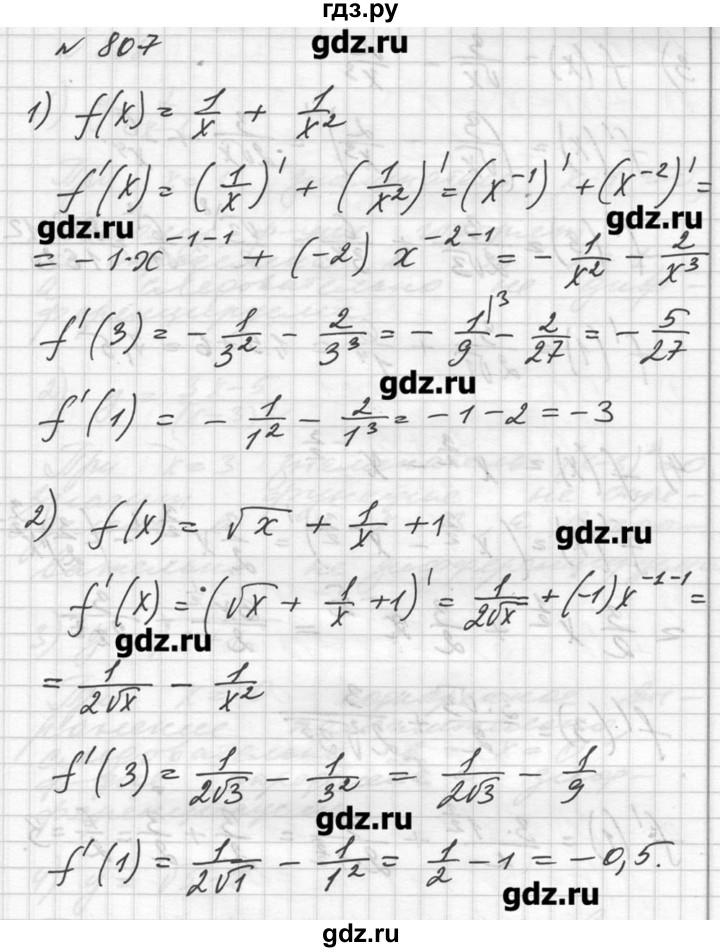 гдз.ру
№ 807
gdz.ru
1) f(x) = 1/x + 1/x²
f'(x) = (1/x)' + (1/x²)' = (x⁻¹)' + (x⁻²)' =
gdz.ru
gdz.ru
= -1·x⁻¹⁻¹ + (-2) x⁻²⁻¹ = - 1/x² - 2/x³
f'(3) = - 1/3² - 2/3³ = - 1/9 |³ - 2/27 = - 5/27
gdz.ru
f'(1) = - 1/1² - 2/1³ = -1-2 = -3
2) f(x) = √x + 1/x + 1
gdz.ru
f'(x) = (√x + 1/x + 1)' = 1/2√x + (-1)x⁻¹⁻¹ =
gdz.ru
= 1/2√x - 1/x²
f'(3) = 1/2√3 - 1/3² = 1/2√3 - 1/9
gdz.ru
f'(1) = 1/2√1 - 1/1² = 1/2 - 1 = -0,5.
gdz.ru
gdz.ru